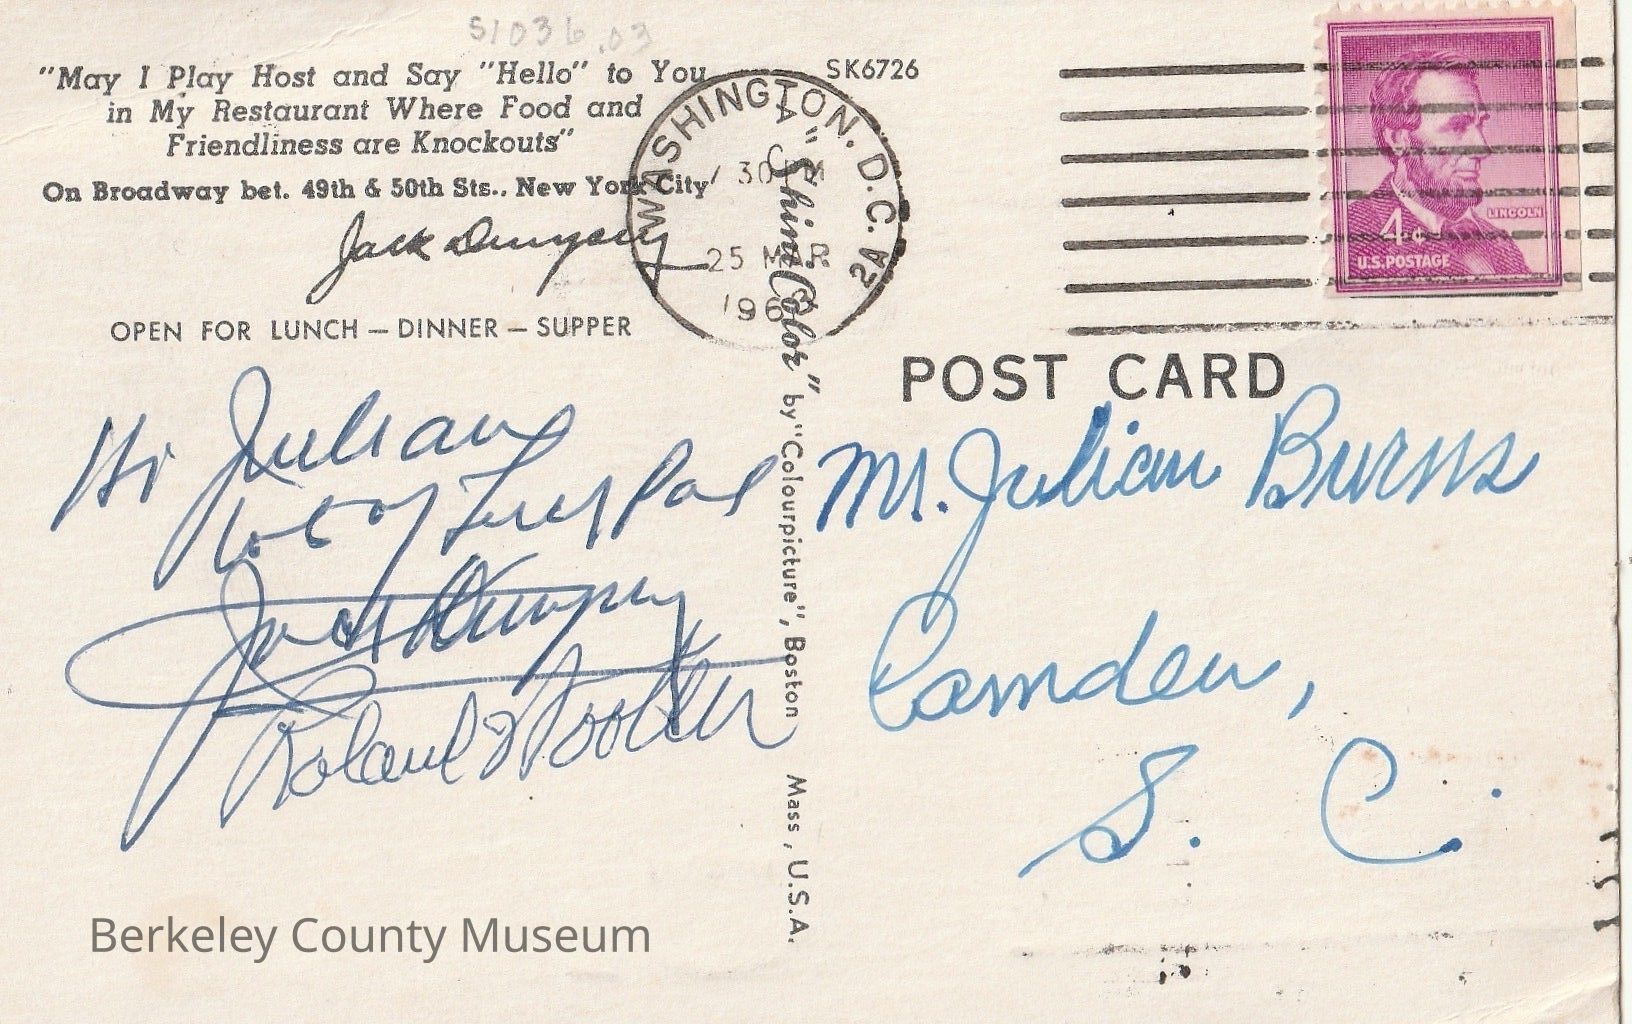 S1036.03
"May I Play Host and Say "Hello" to You
in My Restaurant Where Food and
Friendliness are Knockouts"
On Broadway bet. 49th & 50th Sts., New York City
Jack Dempsey
OPEN FOR LUNCH — DINNER — SUPPER
Hi Julian
lot of luck Pal
Jack Dempsey
Berkeley County Museum
"ShiniColor" by "Colourpicture", Boston Mass, U.S.A.
SK6726
WASHINGTON, D.C. 2A
30 PM
25 MAR
196
LINCOLN
4¢
U.S. POSTAGE
POST CARD
Mr. Julian Burns
Camden,
S. C.